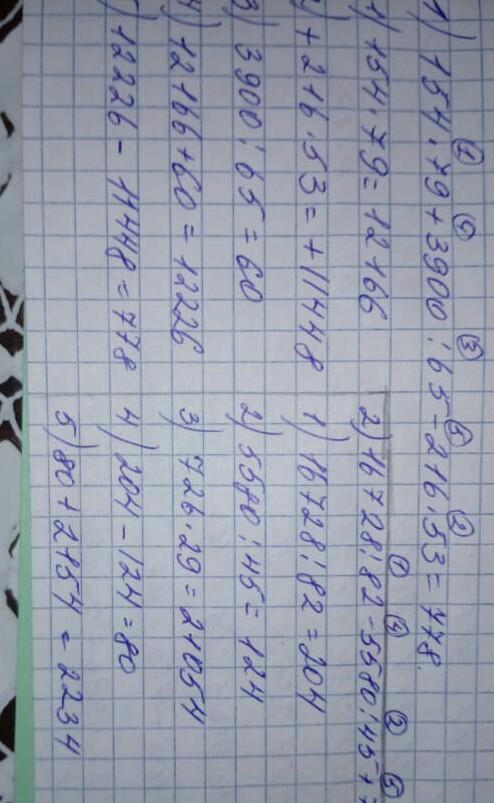 ① ④ ③ ⑤ ②
1) 154·79+3900:65-216·53=778.
1) 154·79=12166
2) +216·53=+11448
3) 3900:65=60
4) 12166+60=12226
5) 12226-11448=778
① ② ⑤
2) 16728:82-5580:45+
1) 16728:82=204
2) 5580:45=124
3) 726·29=21054
4) 204-124=80
5) 80+2154=2234